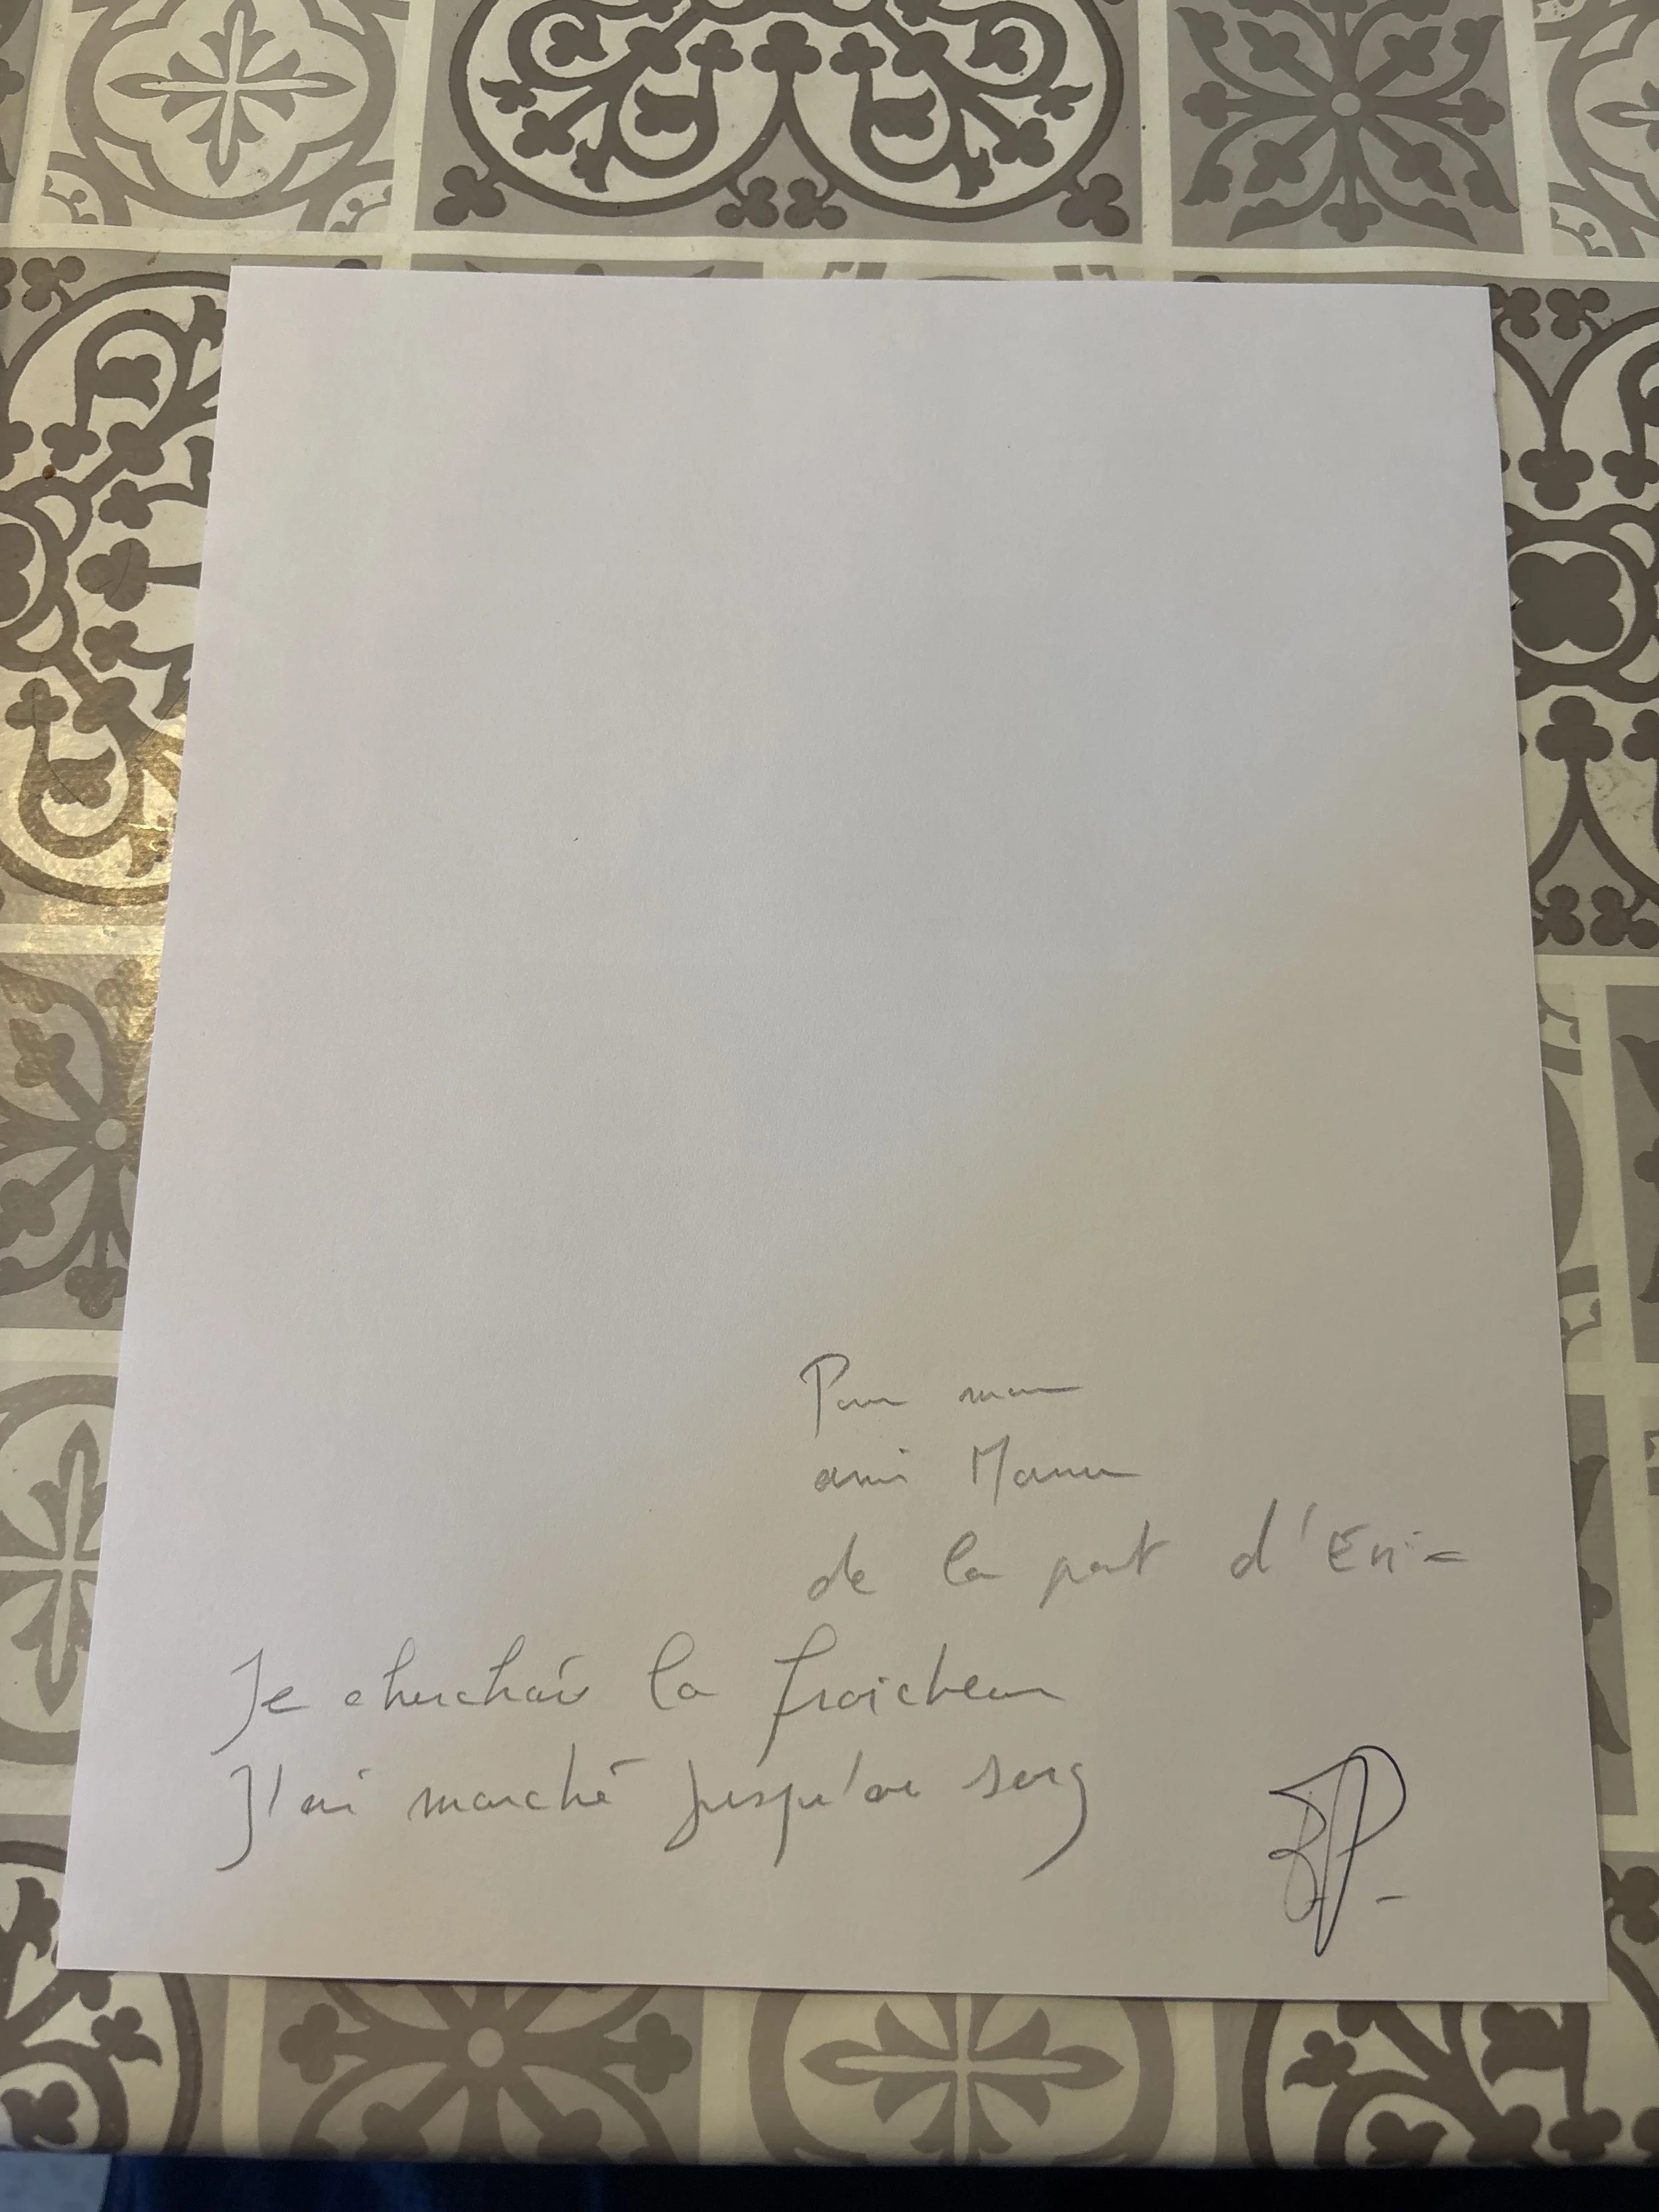 Pour mon
ami Manu
de la part d'Eric
Je cherchais la fraicheur
J'ai marché jusqu'au sorg